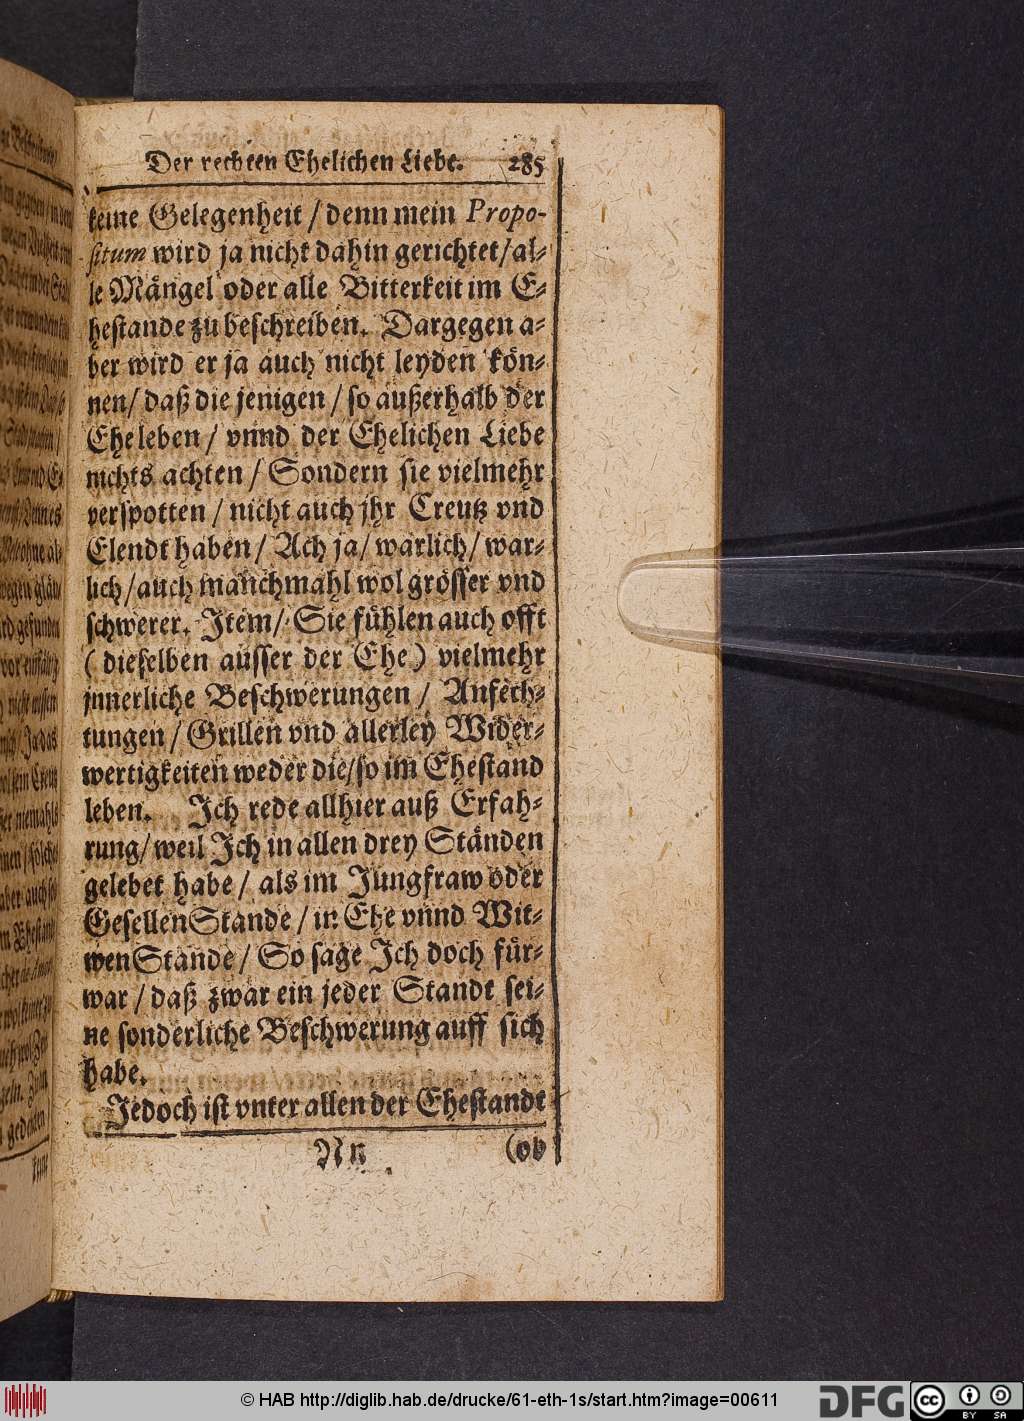 Der rechten Ehelichen Liebe. 285
keine Gelegenheit / denn mein Propo-
situm wird ja nicht dahin gerichtet / al-
le Mängel oder alle Bitterkeit im E-
hestande zu beschreiben. Dargegen a-
ber wird er ja auch nicht leyden kön-
nen / daß die jenigen / so außerhalb der
Ehe leben / vnnd der Ehelichen Liebe
nichts achten / Sondern sie vielmehr
verspotten / nicht auch jhr Creutz vnd
Elendt haben / Ach ja / warlich / war-
lich / auch manchmahl wol grösser vnd
schwerer. Item / Sie fühlen auch offt
( dieselben ausser der Ehe ) vielmehr
jnnerliche Beschwerungen / Anfech-
tungen / Grillen vnd allerley Wider-
wertigkeiten weder die / so im Ehestand
leben. Ich rede allhier auß Erfah-
rung / weil Ich in allen drey Ständen
gelebet habe / als im Jungfraw oder
GesellenStande / in Ehe vnnd Wit-
wenStande / So sage Ich doch für-
war / daß zwar ein jeder Standt sei-
ne sonderliche Beschwerung auff sich
habe.
Jedoch ist vnter allen der Ehestandt
Nn (ob
© HAB http://diglib.hab.de/drucke/61-eth-1s/start.htm?image=00611
DFG
cc BY SA